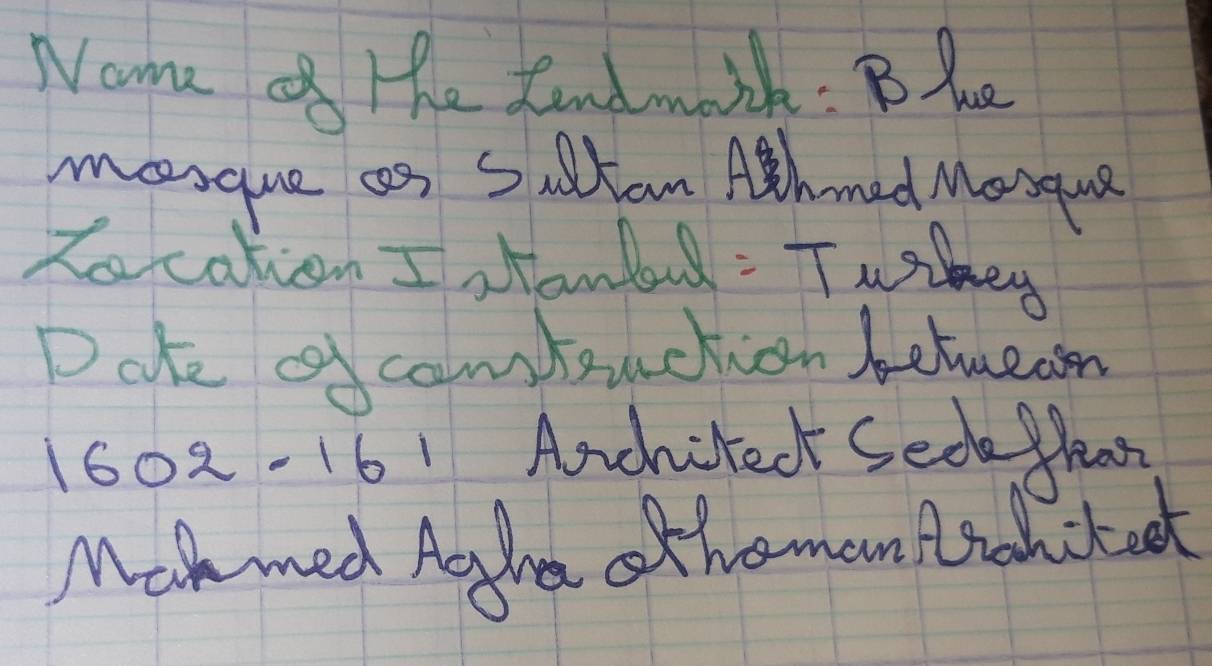 Name of the Lendmark : Blue
mosque or Sultan Ahmed Mosque
Location Istanbul : Turkey
Date of construction betwean
1602 - 161 Architect Sedefkar
Mahmed Agha othoman Architect